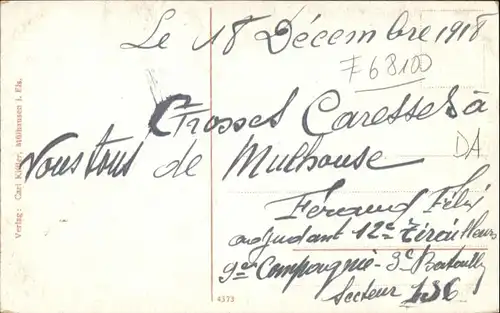 Le 18 Décembre 1918
F 68100
Grosses Caresses à
Vous tous de Mulhouse
DA
Féraud Félix
adjudant 12e Tirailleurs
9e Compagnie - 3e Bataill
Secteur 136
Verlag: Carl Mülhausen i. Els.
4573